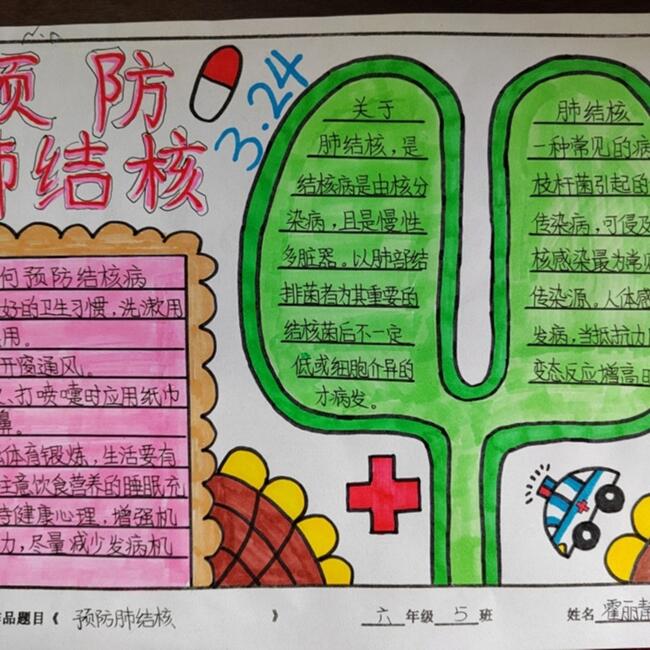 预防
肺结核
3.24
何预防结核病
好的卫生习惯,洗漱用
用。
开窗通风。
、打喷嚏时应用纸巾
鼻。
体育锻炼,生活要有
注意饮食营养的睡眠充
持健康心理,增强机
力,尽量减少发病机
关于
肺结核,是
结核病是由核分
染病,且是慢性
多脏器。以肺部结
排菌者为其重要的
结核菌后不一定
低或细胞介异的
才病发。
肺结核
一种常见的病
枝杆菌引起的
传染病,可侵及
核感染最为常见
传染源。人体感
发病,当抵抗力
变态反应增高时
作品题目《 预防肺结核 》 六 年级 5 班 姓名 霍丽静